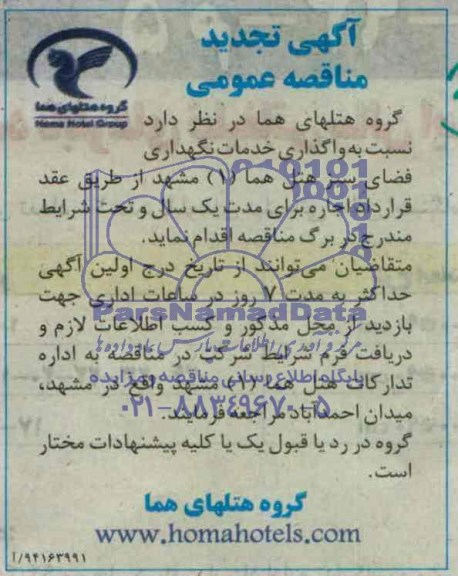 آگهی تجدید
مناقصه عمومی
گروه هتلهای هما
Homa Hotel Group
گروه هتلهای هما در نظر دارد
نسبت به واگذاری خدمات نگهداری
فضای سبز هتل هما (۱) مشهد از طریق عقد
قرارداد اجاره برای مدت یک سال و تحت شرایط
مندرج در برگ مناقصه اقدام نماید.
متقاضیان می‌توانند از تاریخ درج اولین آگهی
حداکثر به مدت ۷ روز در ساعات اداری جهت
بازدید از محل مذکور و کسب اطلاعات لازم و
دریافت فرم شرایط شرکت در مناقصه به اداره
تدارکات هتل هما (۱) مشهد واقع در مشهد،
میدان احمدآباد مراجعه فرمایند.
گروه در رد یا قبول یک یا کلیه پیشنهادات مختار
است.
گروه هتلهای هما
www.homahotels.com
۹۴۱۶۳۹۹۱/آ
ParsNamadData
پایگاه اطلاع رسانی مناقصه و مزایده
۰۲۱-۸۸۳۴۹۶۷۰-۵